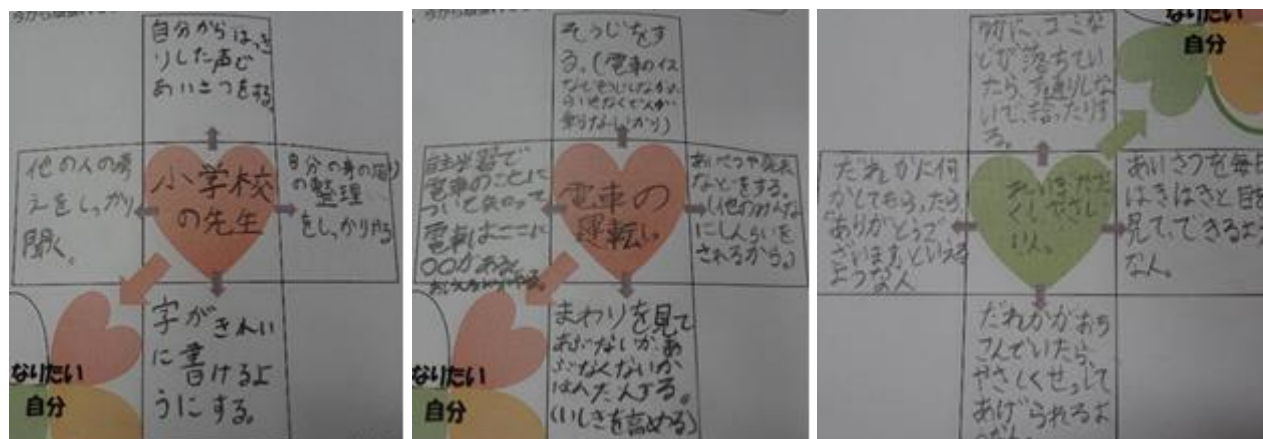 自分からはっき
りした声で
あいさつをする。
他の人の考
えをしっかり
聞く。
小学校
の先生
自分の身の回り
の整理
をしっかりやる
字がきれい
に書けるよ
うにする。
なりたい
自分
そうじをす
る。(電車のイス
などそうじしなかった
乗らないから)
自主学習で
電車のことに
ついて
電車はここに
〇〇がある。
電車の
運転し
あいさつや返事
などをする。
(他のみんな
にしんらいを
されるから。)
まわりを見て
あぶないかあ
ぶなくないか
はんだんする。
(いしきを高める)
なりたい
自分
なりたい
自分
ゴミな
どが落ちてい
たら、す通りしな
いで、拾ったりす
る。
だれかに何
かしてもらったら
ありがとうご
ざいます。といえる
ような人
やさし
い人。
あいさつを毎日
はきはきと目を
見て、できるよ
な人。
だれかがおち
こんでいたら、
やさしくせっして
あげられるよ